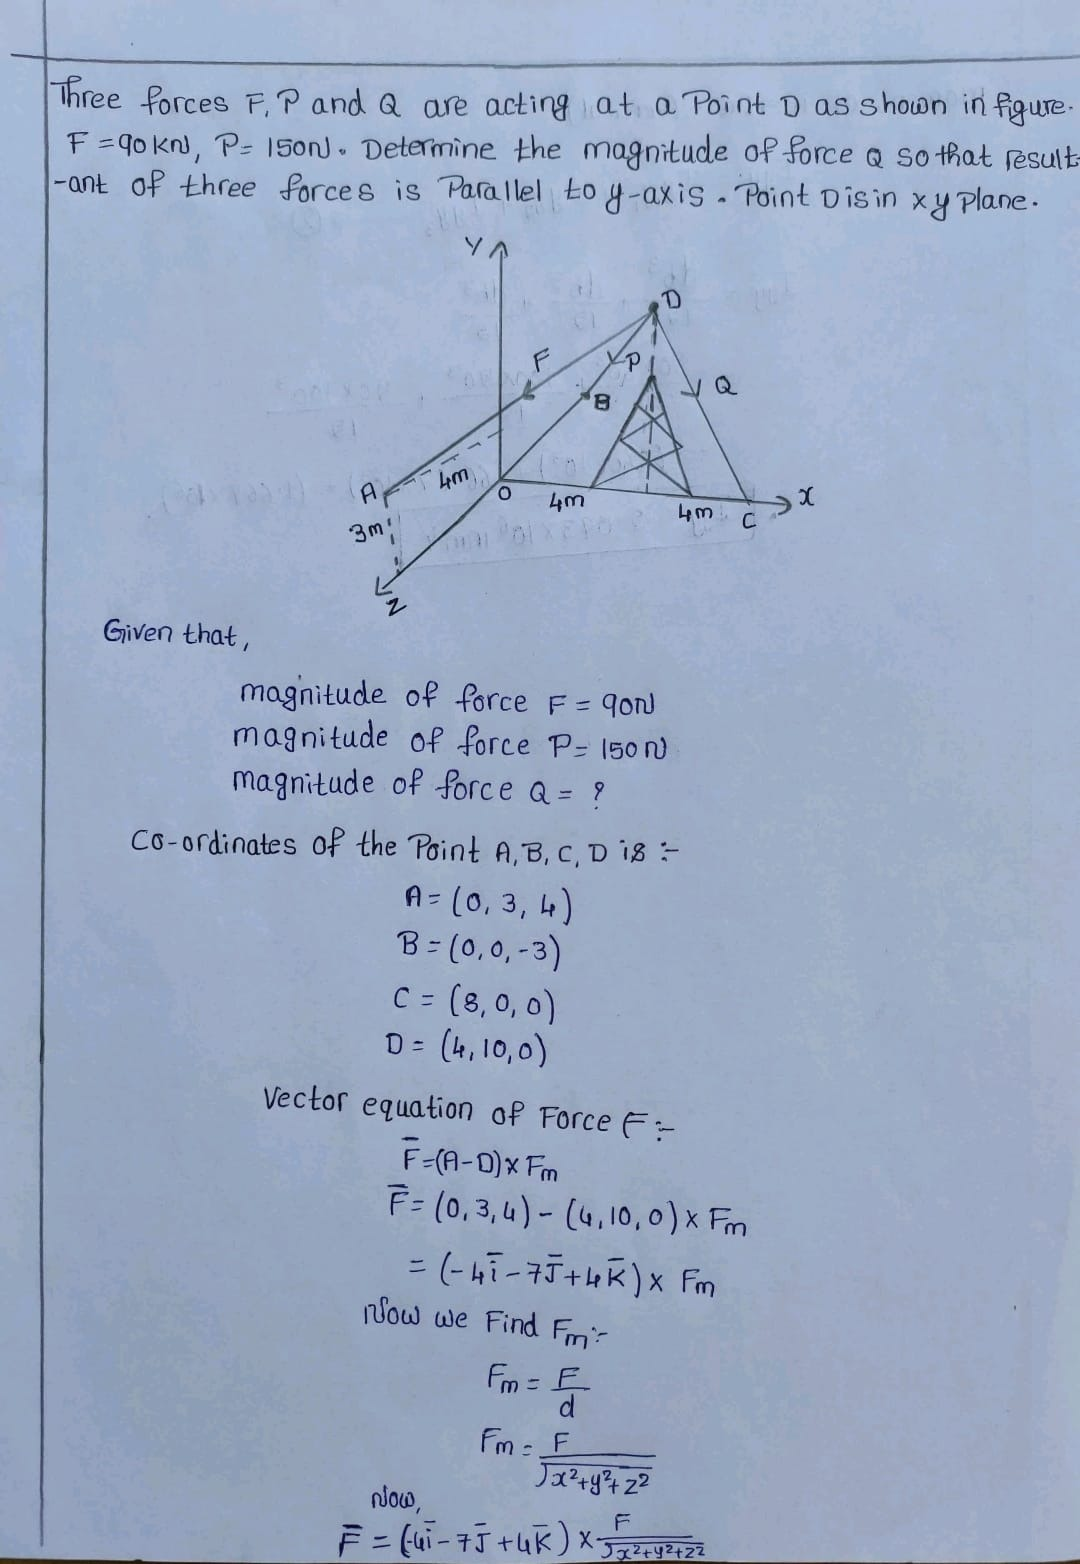 Three forces F, P and Q are acting at a Point D as shown in figure.
F = 90 kN, P = 150N. Determine the magnitude of force Q so that result-
-ant of three forces is Parallel to y-axis. Point D is in xy Plane.
Y
D
F
P
Q
B
A
4m
O
4m
x
3m
4m
C
Z
Given that,
magnitude of force F = 90N
magnitude of force P = 150 N
magnitude of force Q = ?
Co-ordinates of the Point A, B, C, D is :-
A = (0, 3, 4)
B = (0, 0, -3)
C = (8, 0, 0)
D = (4, 10, 0)
Vector equation of Force F :-
F̄ = (A-D) x Fm
F̄ = (0, 3, 4) - (4, 10, 0) x Fm
= (-4ī - 7J̄ + 4K̄) x Fm
Now we Find Fm :-
Fm = F/d
Fm = F/√x²+y²+z²
Now,
F̄ = (-4ī - 7J̄ + 4K̄) x F/√x²+y²+z²